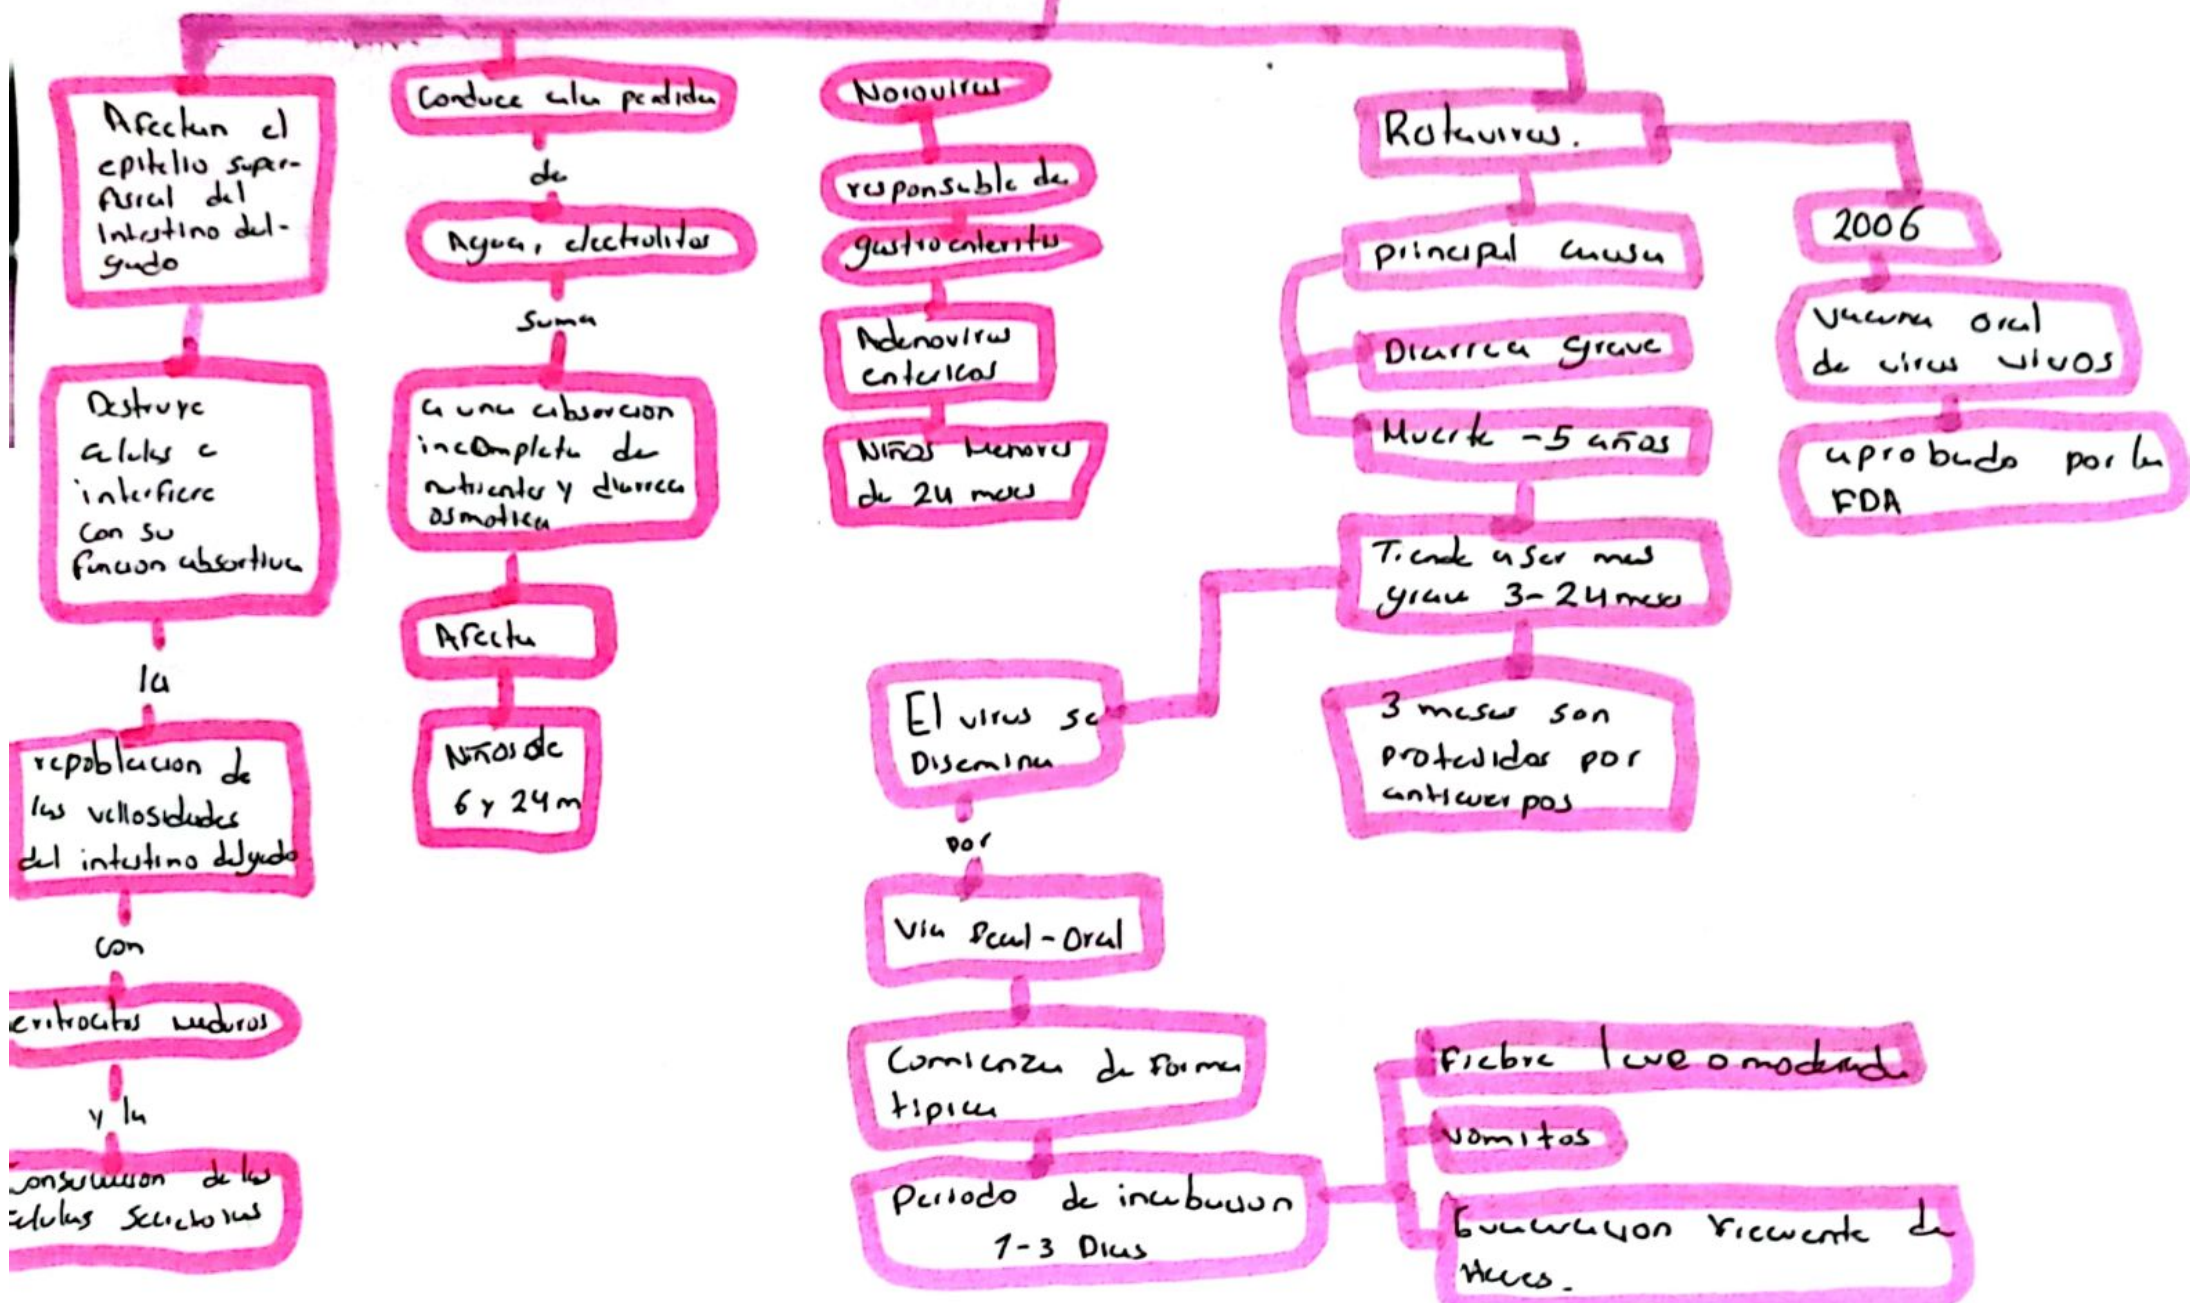 Afectan el
epitelio super-
ficial del
Intestino del-
gado
Destruye
celulas e
interfiere
con su
funcion absortiva
la
repoblacion de
las vellosidades
del intestino delgado
con
eritrocitos maduros
y la
Conservacion de las
celulas Secretorias
Conduce a la perdida
de
Agua, electrolitos
Suma
a una absorcion
incompleta de
nutrientes y diarrea
osmotica
Afecta
Niños de
6 y 24 m
Norovirus
responsable de
gastroenteritis
Adenovirus
entericos
Niños Menores
de 24 meses
Rotavirus.
principal causa
Diarrea grave
Muerte -5 años
Tiende a ser mas
grave 3-24 meses
3 meses son
protejidos por
anticuerpos
2006
vacuna oral
de virus vivos
aprobado por la
FDA
El virus se
Disemina
por
Via fecal-Oral
Comienza de forma
tipica
Periodo de incubacion
1-3 Dias
Fiebre leve o moderada
vomitos
Evacuacion frecuente de
Heces.